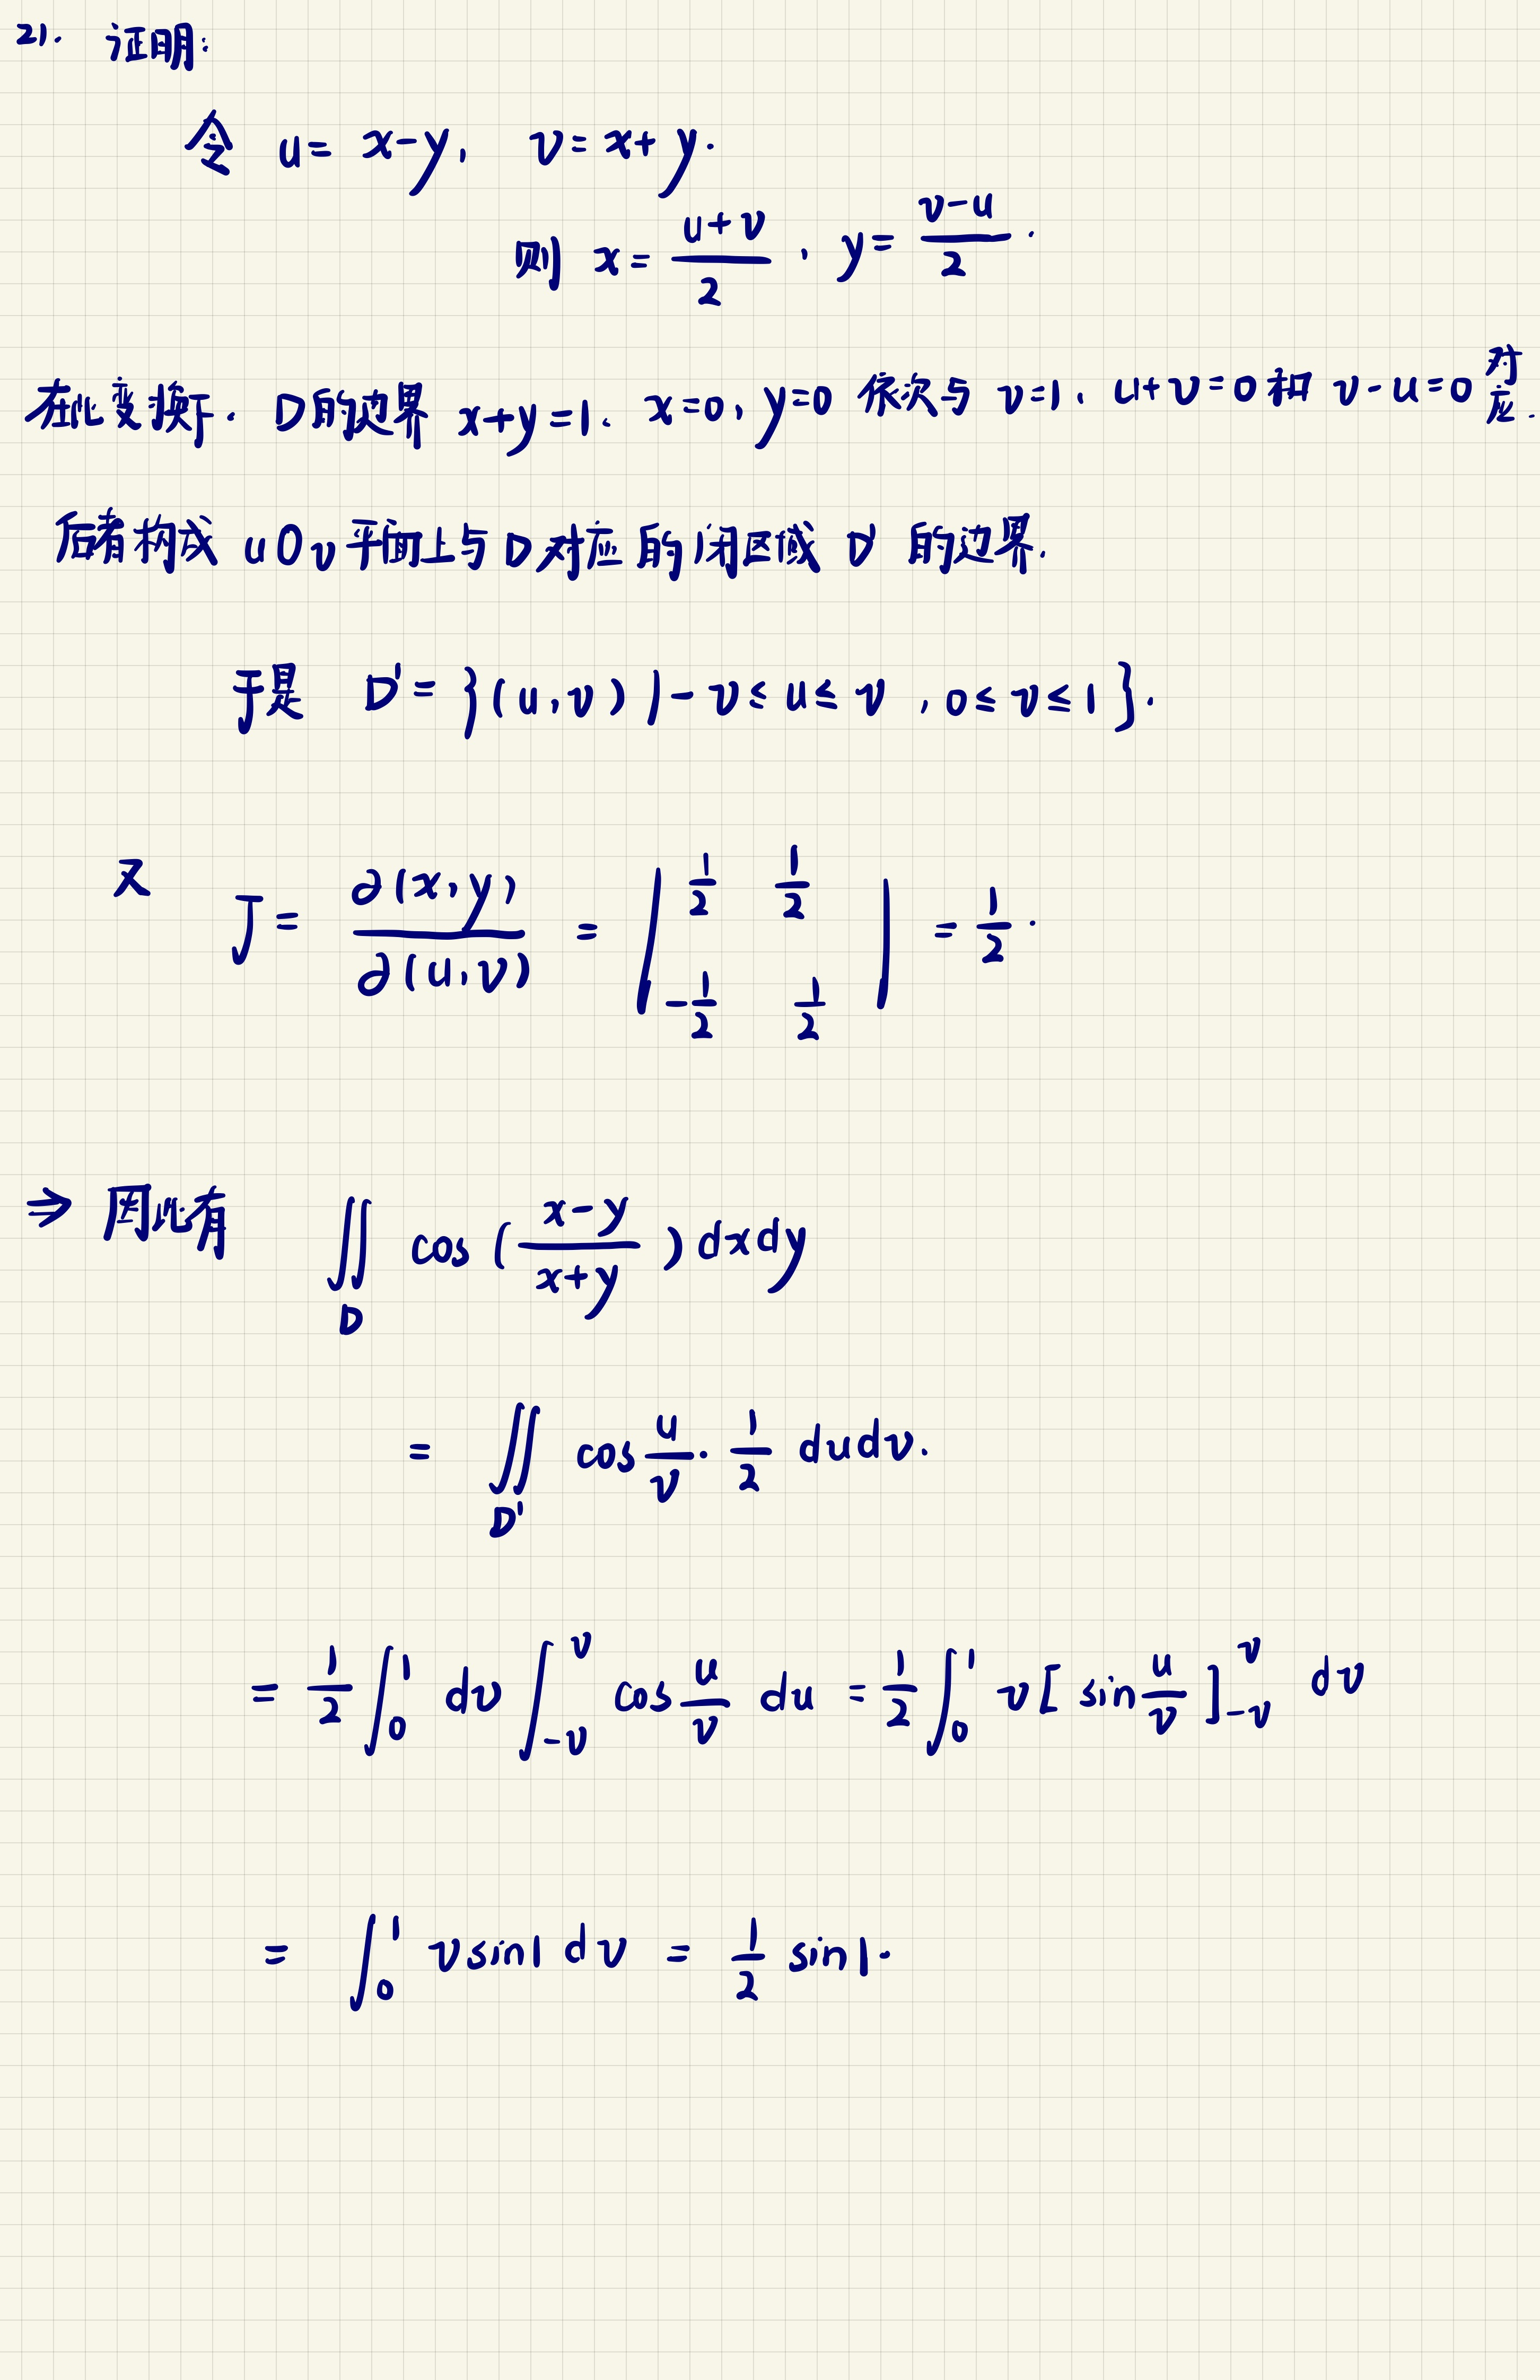 21. 证明:
令 u = x-y, v = x+y.
则 x = \frac{u+v}{2}, y = \frac{v-u}{2}.
在此变换下. D的边界 x+y=1、x=0, y=0 依次与 v=1, u+v=0 和 v-u=0 对应.
后者构成 uOv 平面上与D对应的闭区域 D' 的边界.
于是 D' = {(u,v) | -v ≤ u ≤ v, 0 ≤ v ≤ 1}.
又 J = \frac{∂(x,y)}{∂(u,v)} = \begin{vmatrix} \frac{1}{2} & \frac{1}{2} \\ -\frac{1}{2} & \frac{1}{2} \end{vmatrix} = \frac{1}{2}.
⇒ 因此有 \iint_D cos(\frac{x-y}{x+y}) dxdy
= \iint_{D'} cos\frac{u}{v} · \frac{1}{2} dudv.
= \frac{1}{2} \int_0^1 dv \int_{-v}^{v} cos\frac{u}{v} du = \frac{1}{2} \int_0^1 v[sin\frac{u}{v}]_{-v}^{v} dv
= \int_0^1 v sin1 dv = \frac{1}{2} sin1.